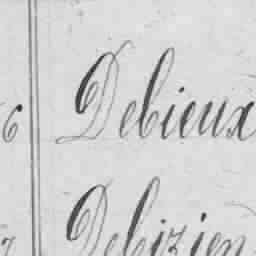 6 Debieux
7 Debizien